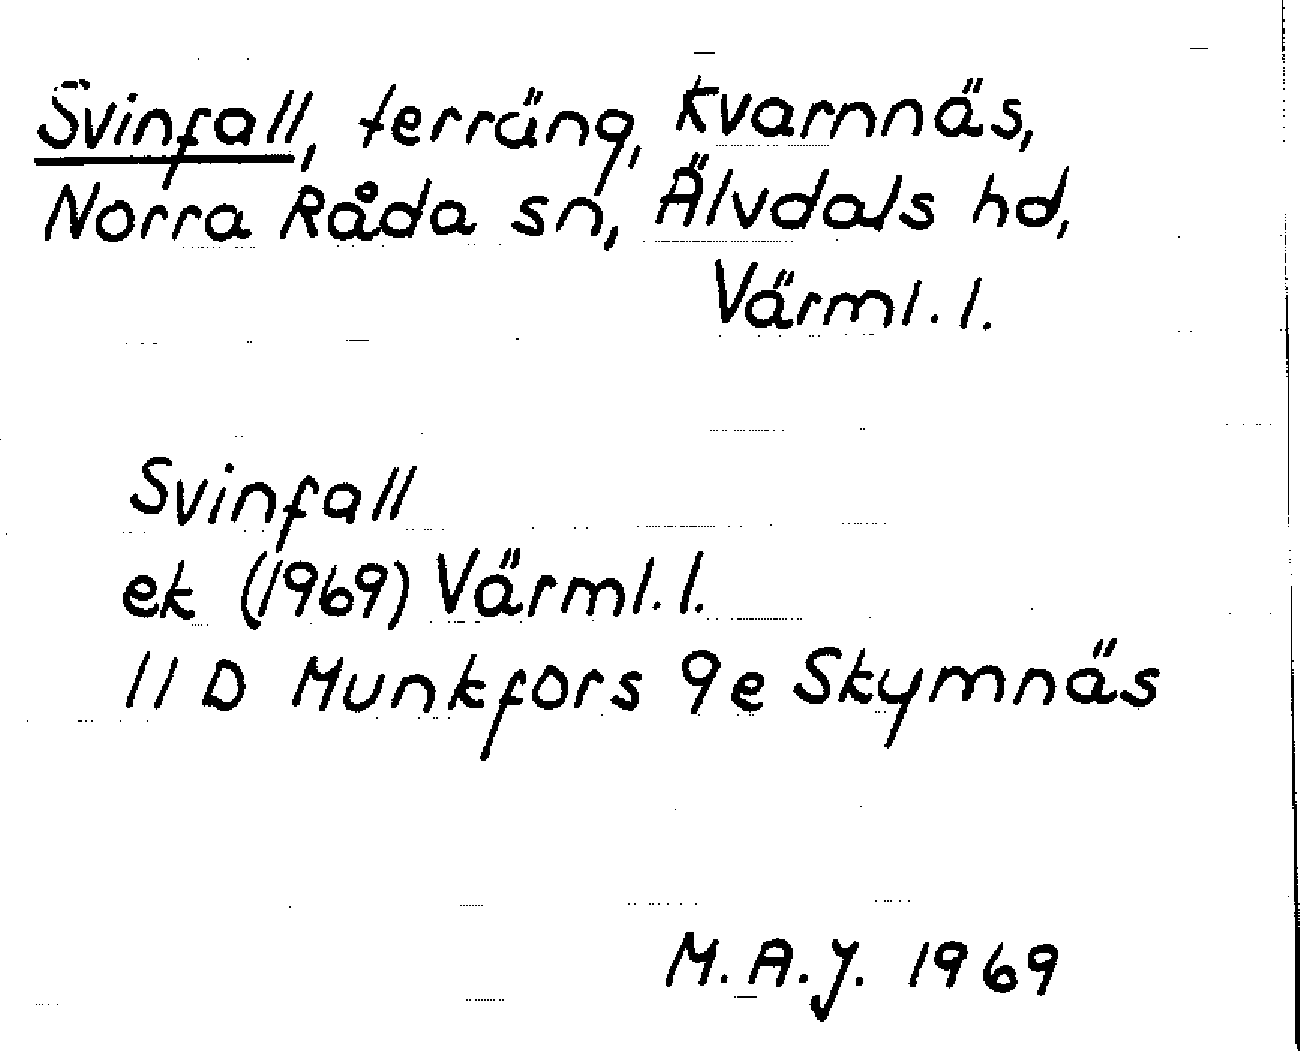 Svinfall, terräng, Kvarnnäs,
Norra Råda sn, Älvdals hd,
Värml. l.
Svinfall
ek (1969) Värml. l.
11 D Munkfors 9e Skymnäs
M.A.J. 1969